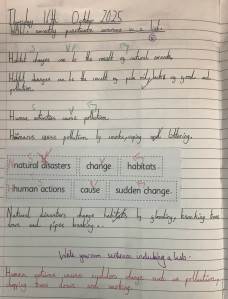 Thursday 16th October 2025
WALT: correctly punctuate sentences in a list.
Habitat changes can be the result of natural events
Habitat changes can be the result of of people and
pollution.
Human activities cause pollution.
Humans cause pollution by smoke, using and littering.
natural disasters change habitats
human actions cause sudden change.
Natural disasters change habitats by flooding, knocking trees
down and pipes breaking.
Write your own sentence including a list.
Human actions cause sudden change such as pollution,
chopping trees down and